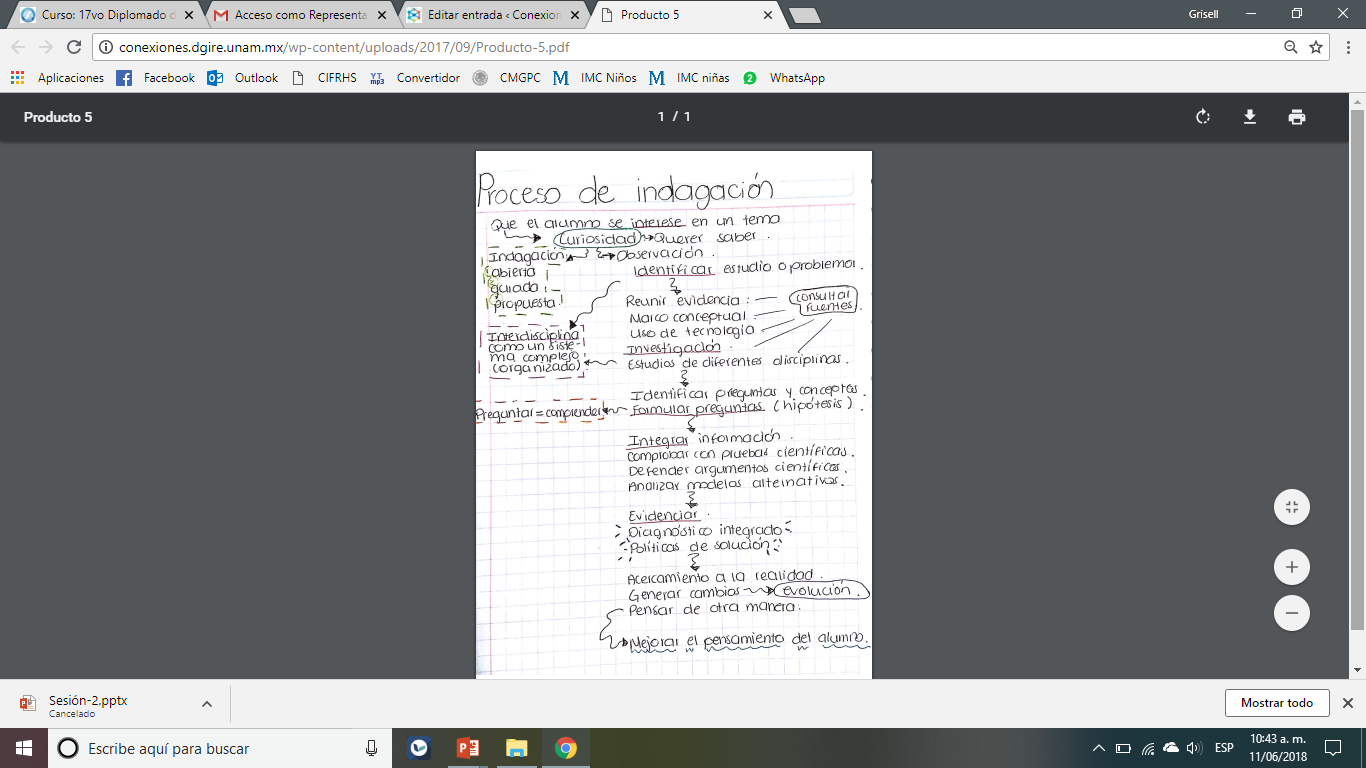 Curso: 17vo Diplomado d
Acceso como Representa
Editar entrada ‹ Conexion
Producto 5
Grisell
conexiones.dgire.unam.mx/wp-content/uploads/2017/09/Producto-5.pdf
Aplicaciones
Facebook
Outlook
CIFRHS
YT mp3
Convertidor
CMGPC
M
IMC Niños
M
IMC niñas
2
WhatsApp
Producto 5
1 / 1
Proceso de indagación
Que el alumno se interese en un tema
Curiosidad Querer saber.
Indagación Observación.
abierta
guiada
propuesta.
Identificar estudio o problema.
Reunir evidencia:
Marco conceptual.
Uso de tecnología
Investigación.
Estudios de diferentes disciplinas.
consultar
fuentes.
Interdisciplina
como un siste-
ma complejo
(organizado)
Identificar preguntas y conceptos.
Formular preguntas (hipótesis).
Preguntar = comprender
Integrar información.
Comprobar con pruebas científicas.
Defender argumentos científicos.
Analizar modelos alternativos.
Evidenciar.
Diagnóstico integrado
Políticas de solución
Acercamiento a la realidad.
Generar cambios evolución.
Pensar de otra manera.
Mejorar el pensamiento del alumno.
Sesión-2.pptx
Cancelado
Mostrar todo
Escribe aquí para buscar
ESP
10:43 a. m.
11/06/2018